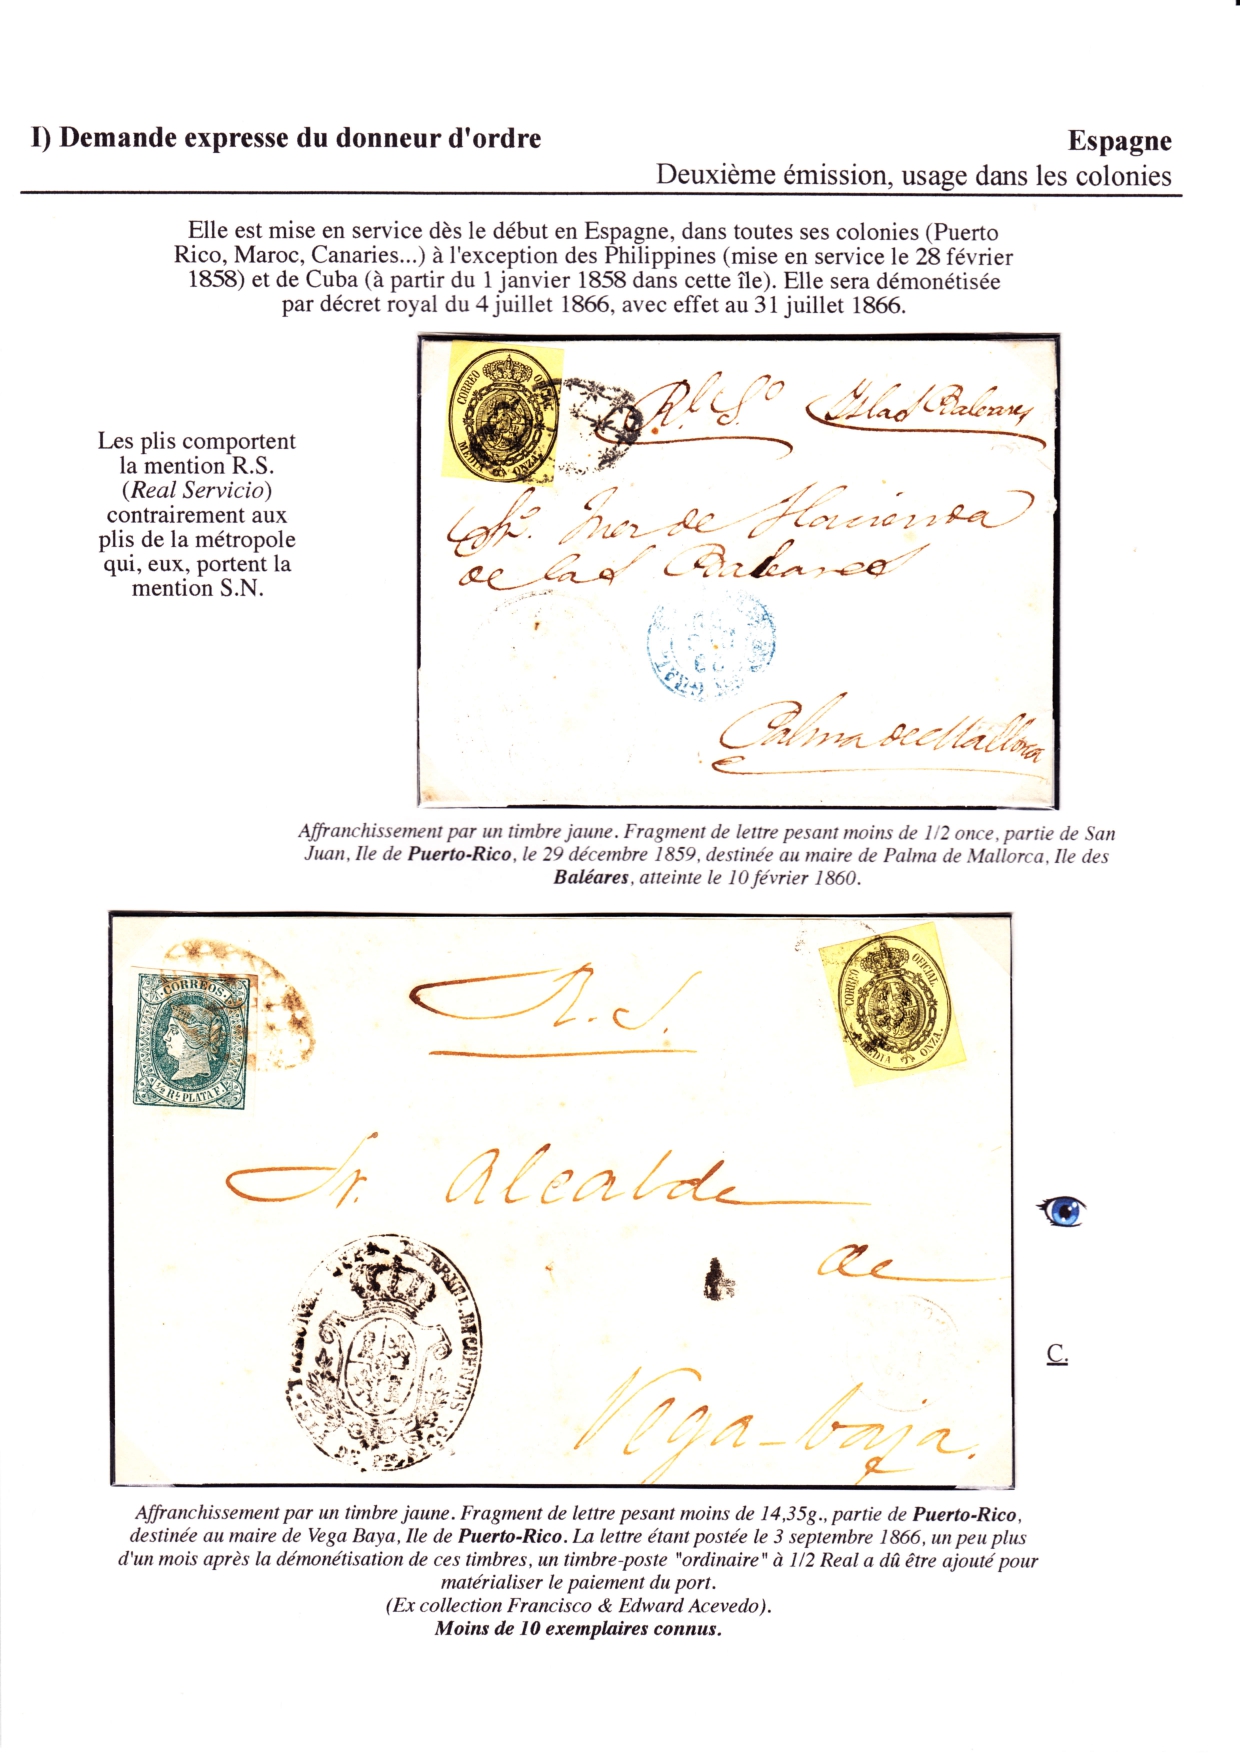 I) Demande expresse du donneur d'ordre
Espagne
Deuxième émission, usage dans les colonies
Elle est mise en service dès le début en Espagne, dans toutes ses colonies (Puerto
Rico, Maroc, Canaries...) à l'exception des Philippines (mise en service le 28 février
1858) et de Cuba (à partir du 1 janvier 1858 dans cette île). Elle sera démonétisée
par décret royal du 4 juillet 1866, avec effet au 31 juillet 1866.
Les plis comportent
la mention R.S.
(Real Servicio)
contrairement aux
plis de la métropole
qui, eux, portent la
mention S.N.
CORREO OFICIAL
MEDIA ONZA.
Rl. So Islas Baleares
de Hacienda
de las Baleares
Palma de Mallorca
Affranchissement par un timbre jaune. Fragment de lettre pesant moins de 1/2 once, partie de San
Juan, Ile de Puerto-Rico, le 29 décembre 1859, destinée au maire de Palma de Mallorca, Ile des
Baléares, atteinte le 10 février 1860.
CORREOS
1/2 Rl. PLATA F.
R. S.
CORREO OFICIAL.
MEDIA ONZA.
Sr. Alcalde
de
Vega-baja.
C.
Affranchissement par un timbre jaune. Fragment de lettre pesant moins de 14,35g., partie de Puerto-Rico,
destinée au maire de Vega Baya, Ile de Puerto-Rico. La lettre étant postée le 3 septembre 1866, un peu plus
d'un mois après la démonétisation de ces timbres, un timbre-poste "ordinaire" à 1/2 Real a dû être ajouté pour
matérialiser le paiement du port.
(Ex collection Francisco & Edward Acevedo).
Moins de 10 exemplaires connus.